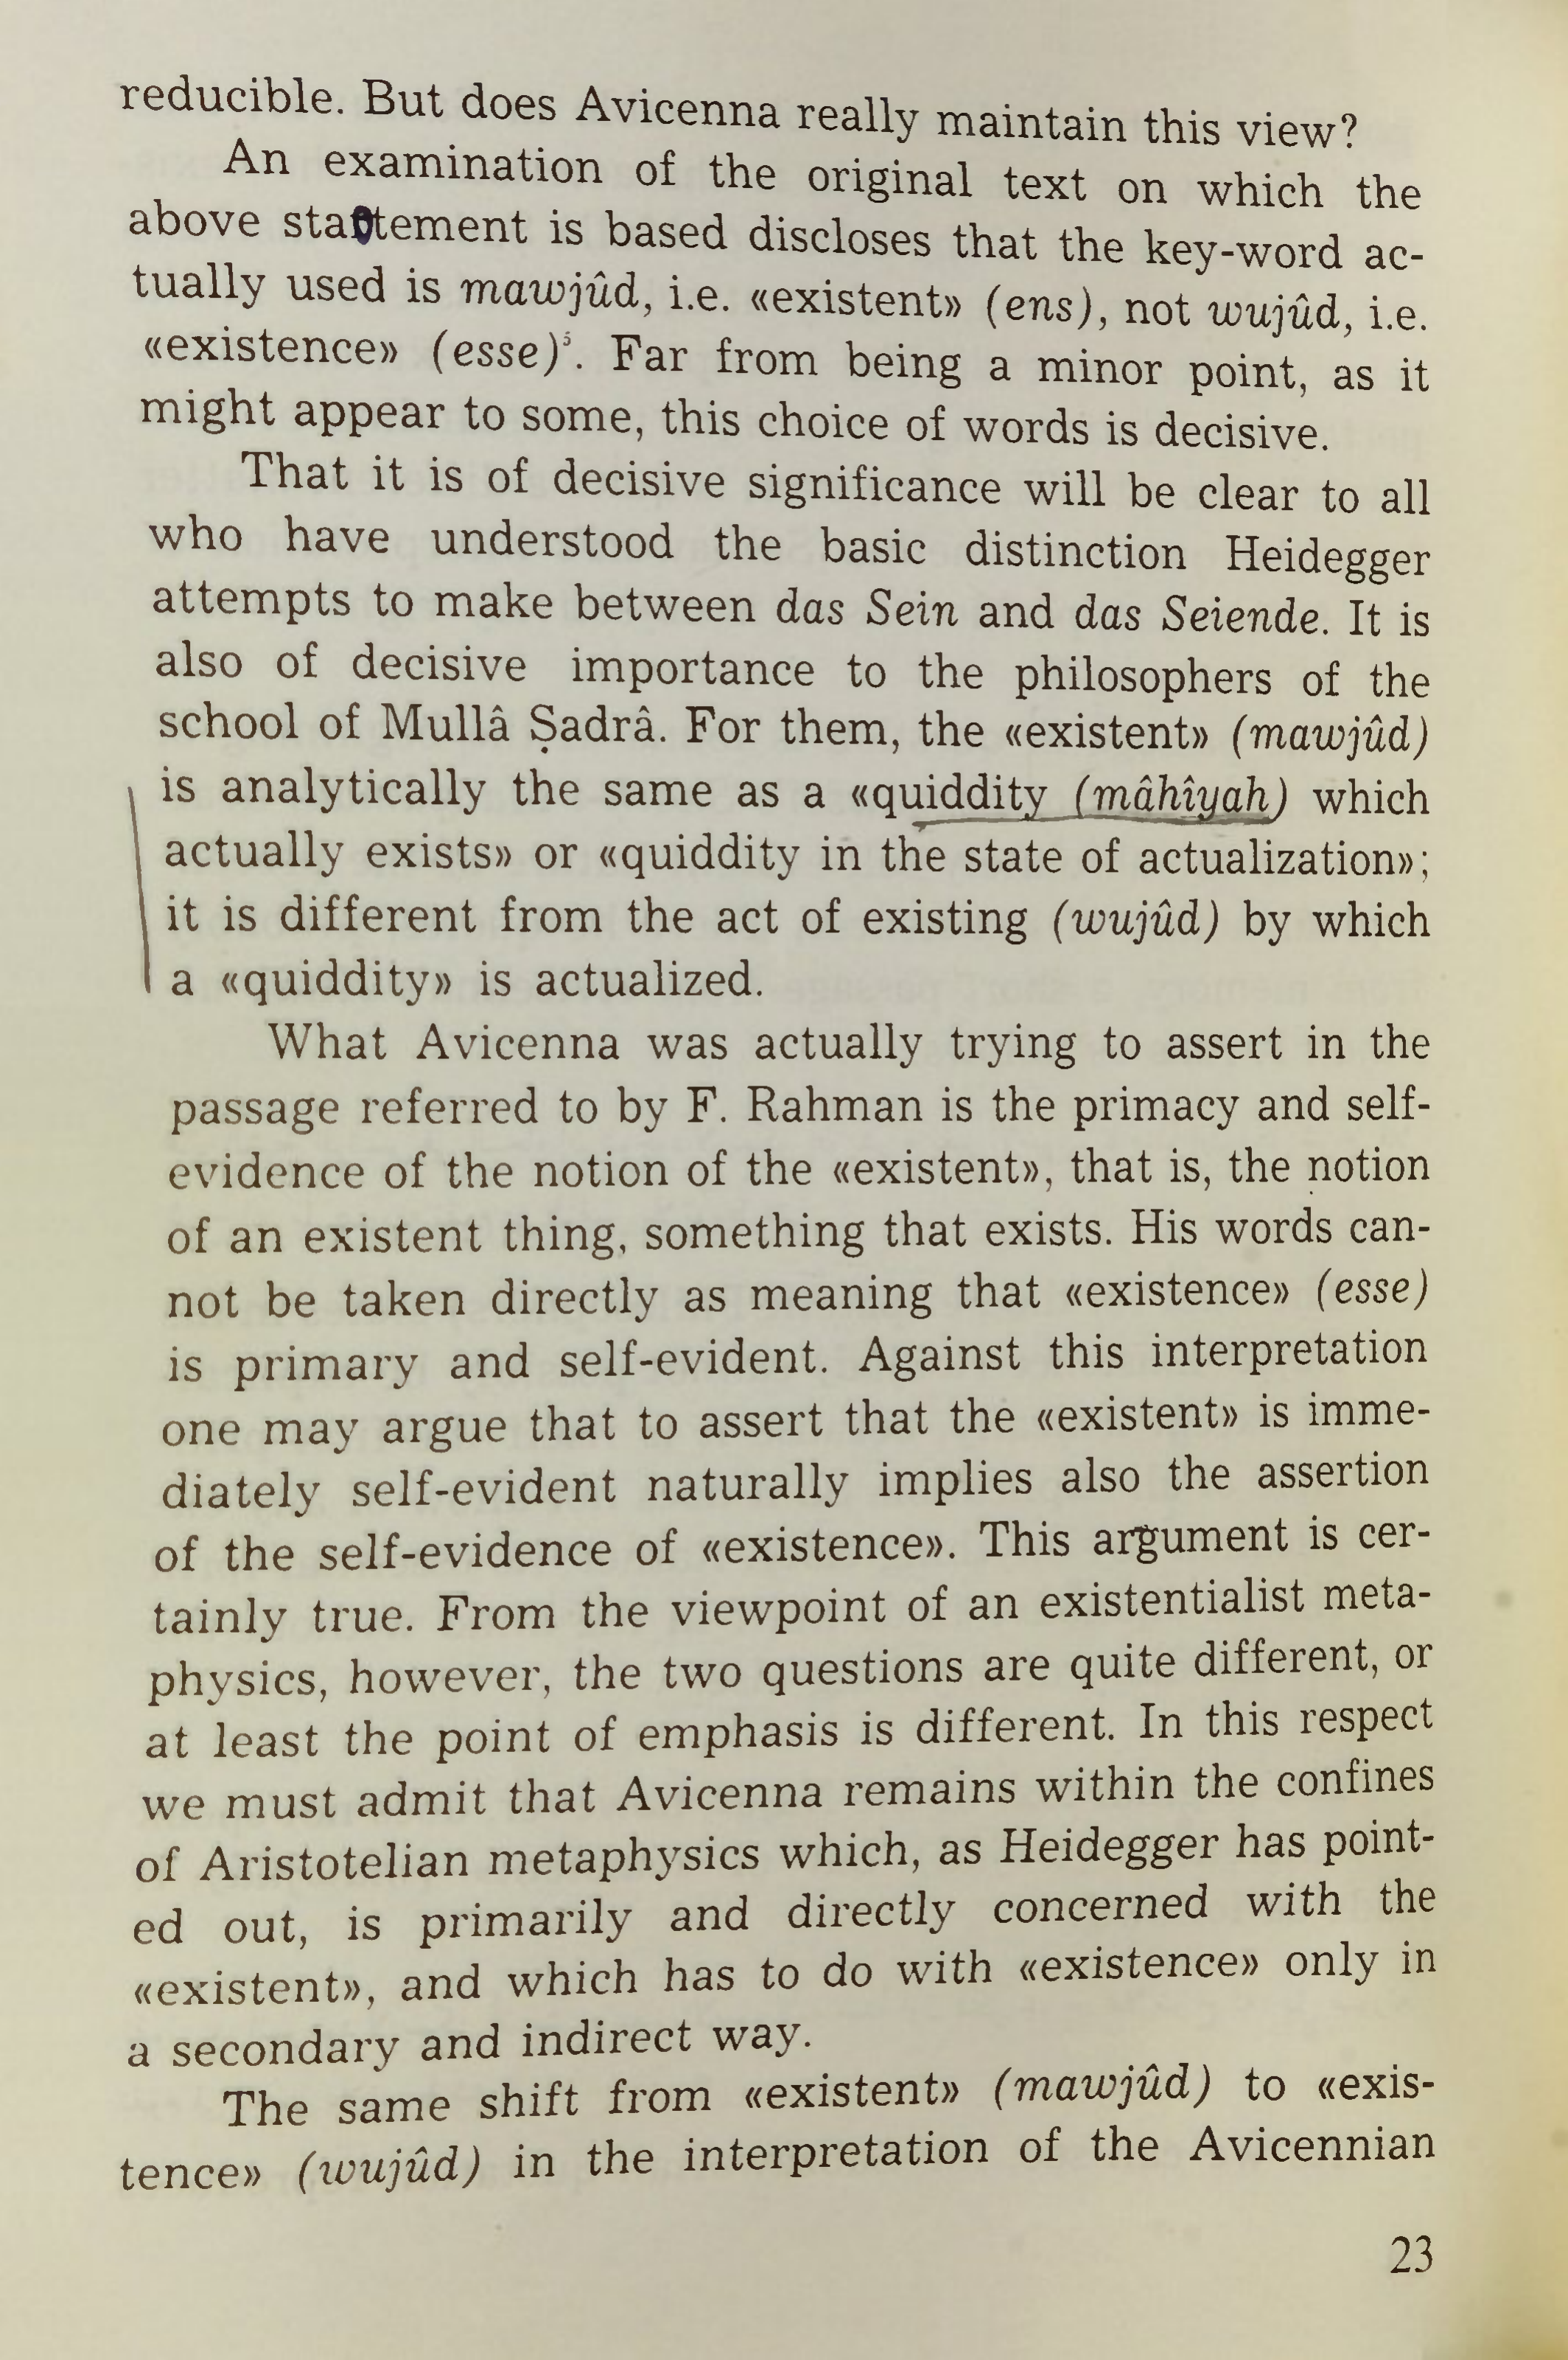 reducible. But does Avicenna really maintain this view?
An examination of the original text on which the
above statement is based discloses that the key-word ac-
tually used is mawjûd, i.e. «existent» (ens), not wujûd, i.e.
«existence» (esse)⁵. Far from being a minor point, as it
might appear to some, this choice of words is decisive.
That it is of decisive significance will be clear to all
who have understood the basic distinction Heidegger
attempts to make between das Sein and das Seiende. It is
also of decisive importance to the philosophers of the
school of Mullâ Ṣadrâ. For them, the «existent» (mawjûd)
is analytically the same as a «quiddity (mâhîyah) which
actually exists» or «quiddity in the state of actualization»;
it is different from the act of existing (wujûd) by which
a «quiddity» is actualized.
What Avicenna was actually trying to assert in the
passage referred to by F. Rahman is the primacy and self-
evidence of the notion of the «existent», that is, the notion
of an existent thing, something that exists. His words can-
not be taken directly as meaning that «existence» (esse)
is primary and self-evident. Against this interpretation
one may argue that to assert that the «existent» is imme-
diately self-evident naturally implies also the assertion
of the self-evidence of «existence». This argument is cer-
tainly true. From the viewpoint of an existentialist meta-
physics, however, the two questions are quite different, or
at least the point of emphasis is different. In this respect
we must admit that Avicenna remains within the confines
of Aristotelian metaphysics which, as Heidegger has point-
ed out, is primarily and directly concerned with the
«existent», and which has to do with «existence» only in
a secondary and indirect way.
The same shift from «existent» (mawjûd) to «exis-
tence» (wujûd) in the interpretation of the Avicennian
23